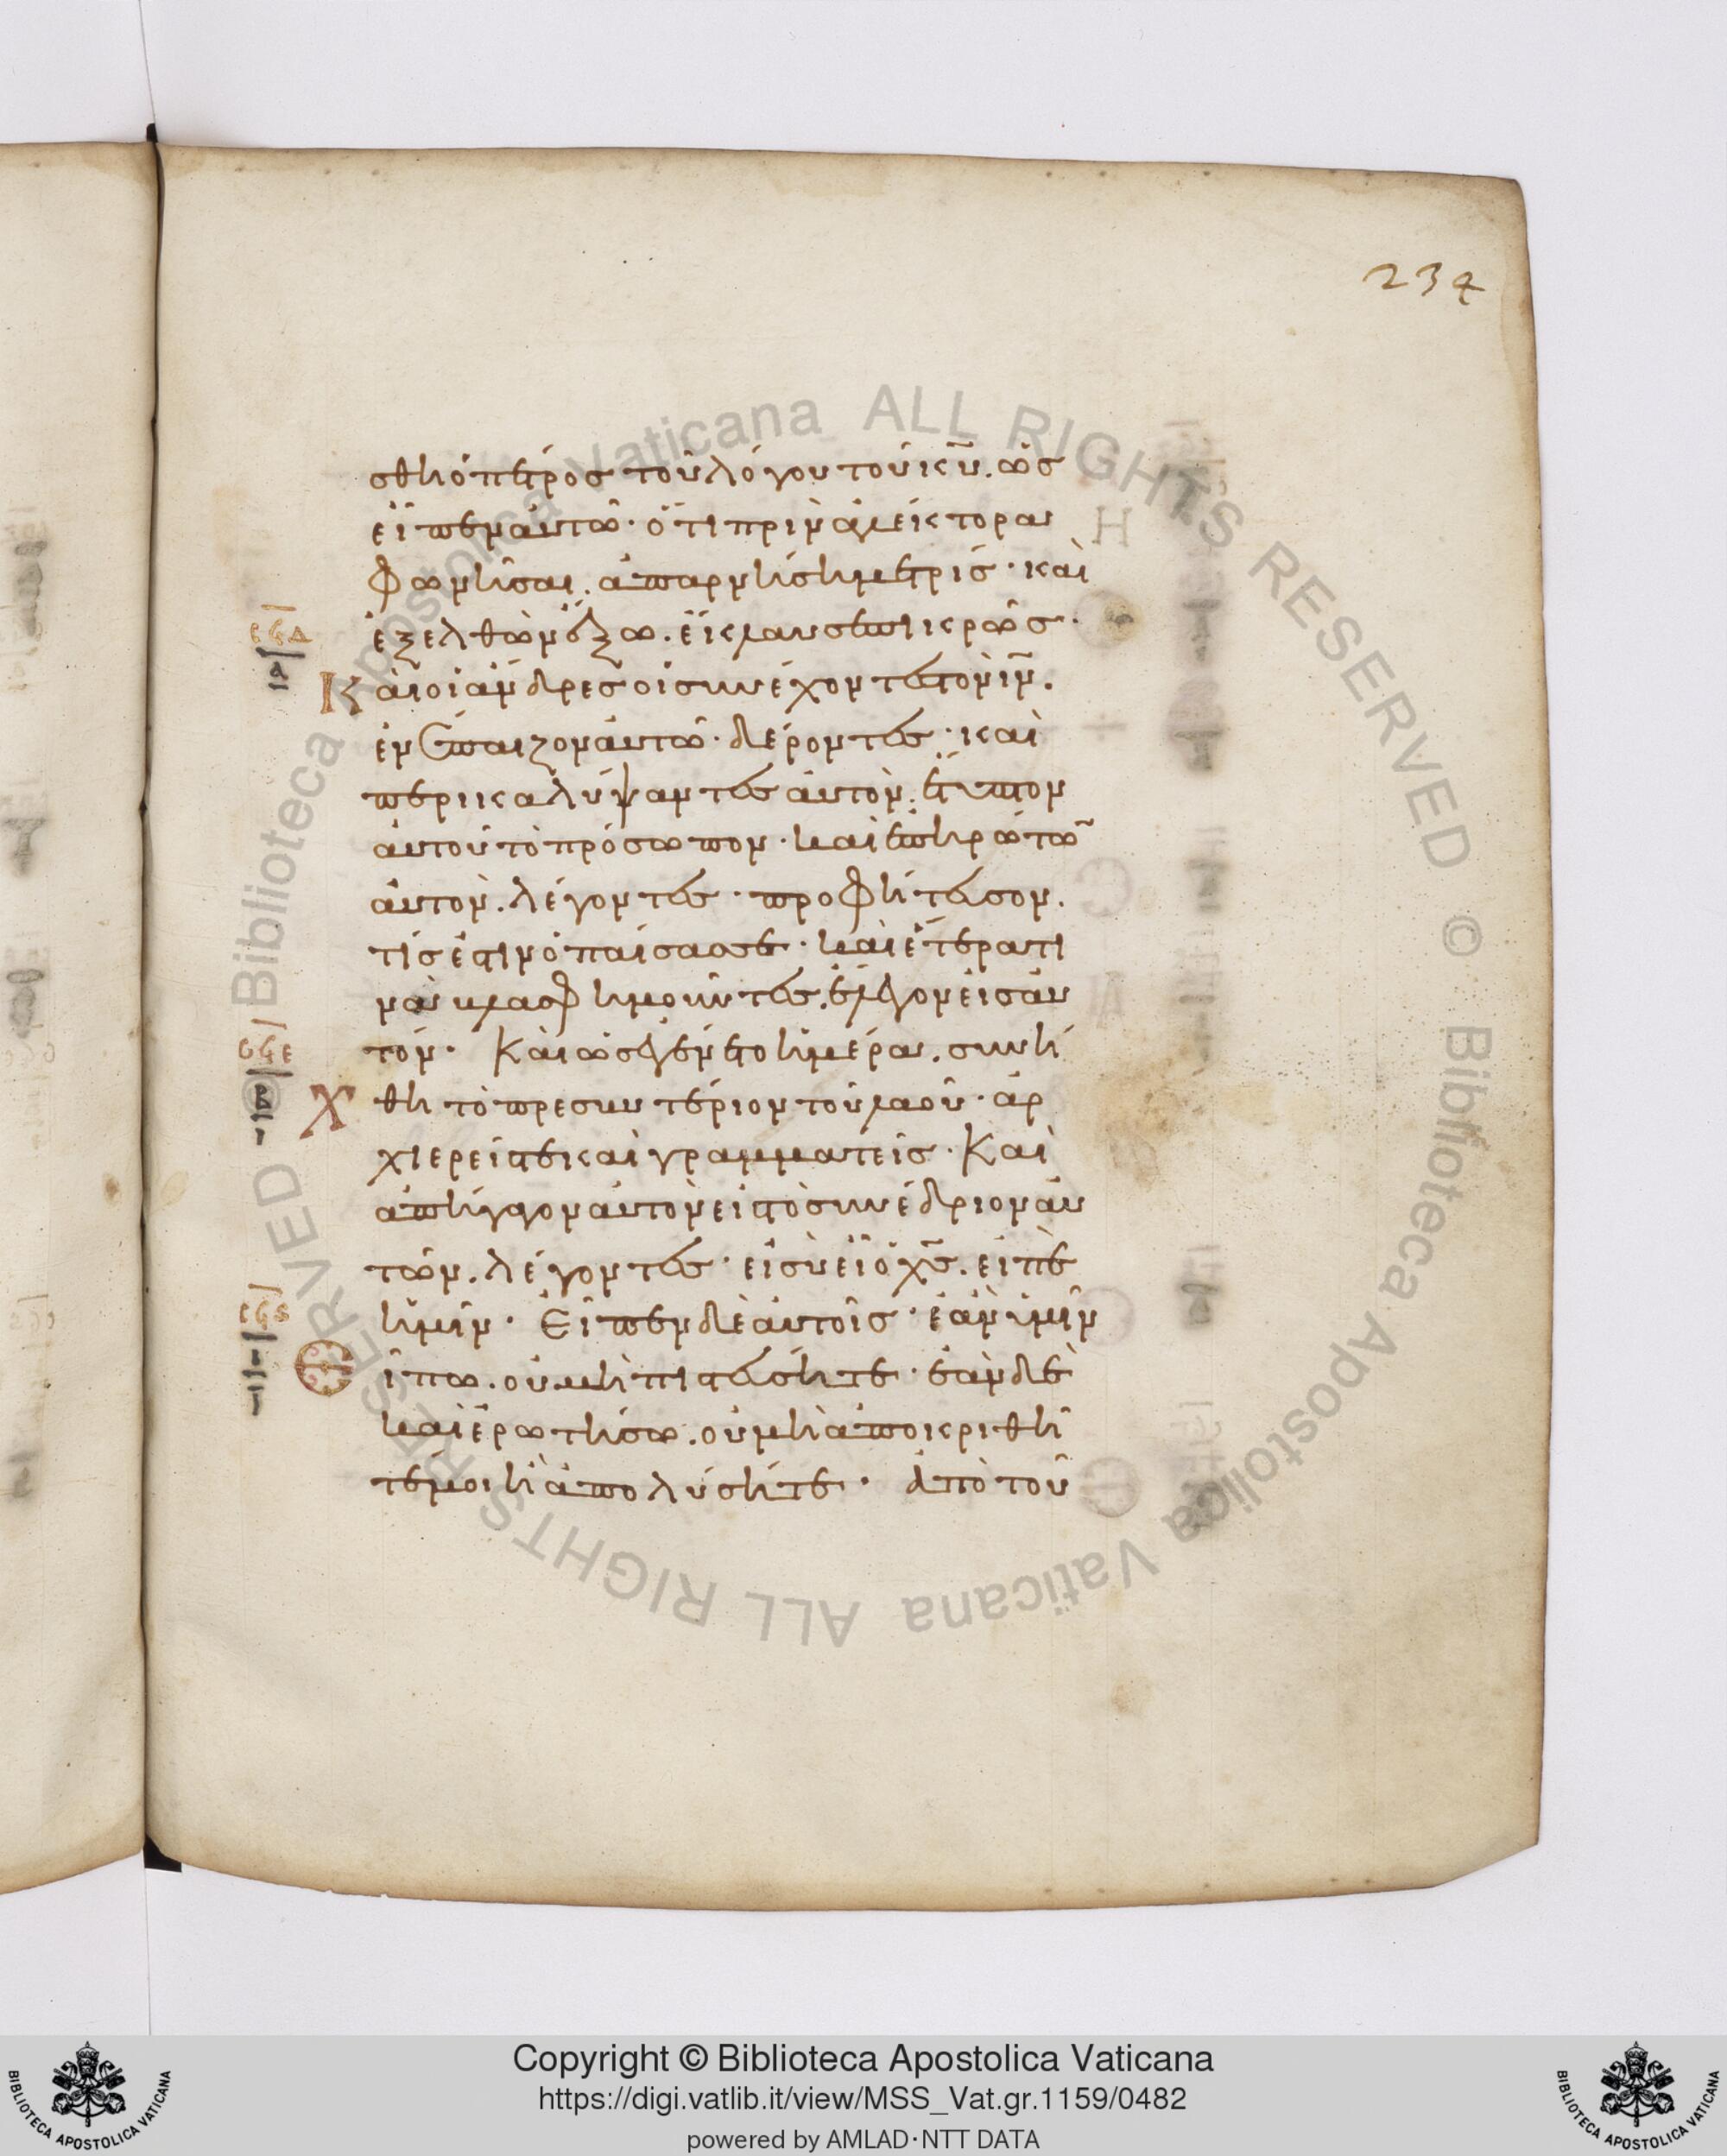 234
σθη ὁ πέτρος τοῦ λόγου τοῦ κ̅υ̅. ὡς
εἶπεν αὐτῶ· ὅτι πρὶν ἀλέκτορα
φωνῆσαι. ἀπαρνήση με τρίς· καὶ
ἐξελθὼν ἔξω. ἔκλαυσε πικρῶς·
Καὶ οἱ ἄνδρες οἱ συνέχοντες τὸν ι̅ν̅.
ἐνέπαιζον αὐτῶ· δέροντες· καὶ
περικαλύψαντες αὐτὸν. ἔτυπτον
αὐτοῦ τὸ πρόσωπον· καὶ ἐπηρώτω̅
αὐτὸν. λέγοντες· προφήτευσον.
τίς ἐστιν ὁ παίσας σε· καὶ ἕτερα πολ
βλασφημοῦντες. ἔλεγον εἰς αὐ
τόν· Καὶ ὡς ἐγένετο ἡμέρα. συνή
χθη τὸ πρεσβυτέριον τοῦ λαοῦ· ἀρ
χιερεῖς τε καὶ γραμματεῖς· Καὶ
ἀπήγαγον αὐτὸν εἰς τὸ συνέδριον αὐ
τῶν. λέγοντες· εἰ σὺ εἶ ὁ χ̅ς̅. εἰπὲ
ἡμῖν· Εἶπεν δὲ αὐτοῖς· ἐὰν ὑμῖν
εἴπω. οὐ μὴ πιστεύσητε· ἐὰν δὲ
καὶ ἐρωτήσω. οὐ μὴ ἀποκριθῆ
τέ μοι ἢ ἀπολύσητε· ἀπὸ τοῦ
Copyright © Biblioteca Apostolica Vaticana
https://digi.vatlib.it/view/MSS_Vat.gr.1159/0482
powered by AMLAD·NTT DATA